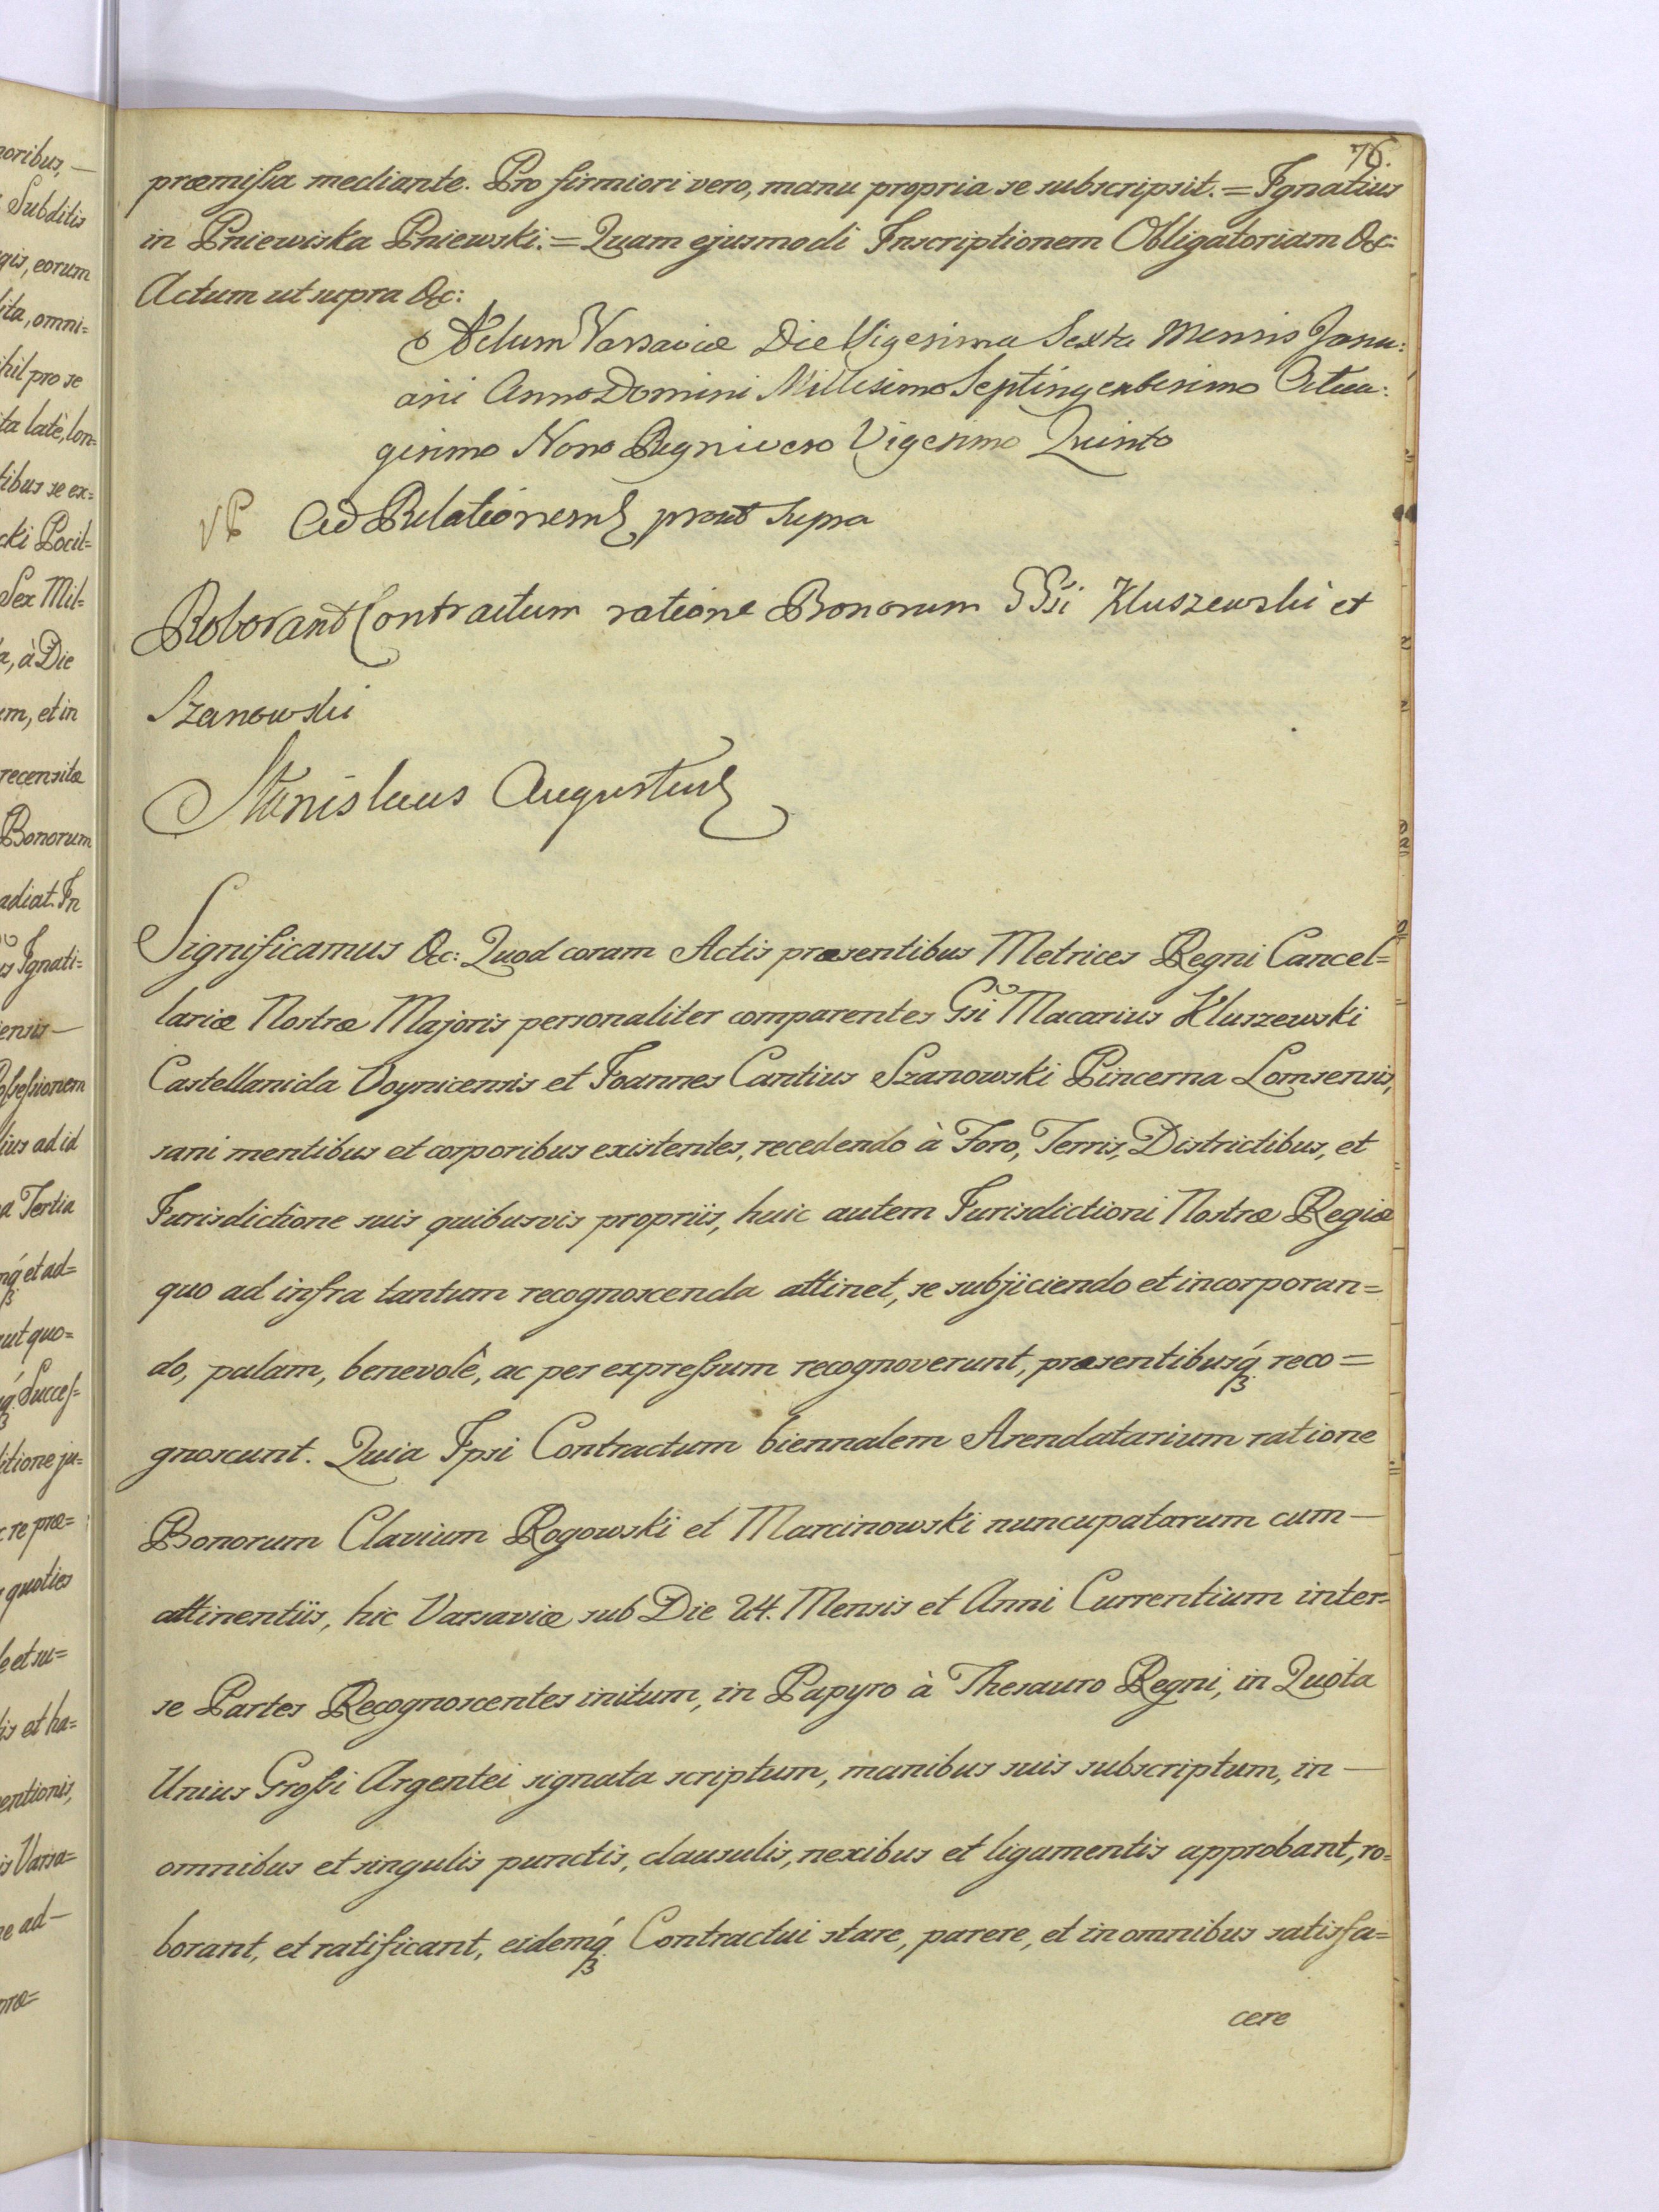 76.
præmissa mediante. Pro firmiori vero, manu propria se subscripsit. = Ignatius
in Pniewiska Pniewski. = Quam ejusmodi Inscriptionem Obligatoriam &c:
Actum ut supra &c:
Actum Varsaviæ Die Vigesima Sexta Mensis Janu:
arii Anno Domini Millesimo Septingentesimo Octua:
gesimo Nono Regni vero Vigesimo Quinto
Ad Relationem prout supra
Roborant Contractum ratione Bonorum GGsi Kluszewski et
Szanowski
Stanislaus Augustus
Significamus &c: Quod coram Actis præsentibus Metrices Regni Cancel=
lariæ Nostræ Majoris personaliter comparentes Gsi Macarius Kluszewski
Castellanida Voynicensis et Joannes Cantius Szanowski Pincerna Lomsensis,
sani mentibus et corporibus existentes, recedendo à Foro, Terris, Districtibus, et
Jurisdictione suis quibusvis propriis, huic autem Jurisdictioni Nostræ Regiæ
quo ad infra tantum recognoscenda attinet, se subjiciendo et incorporan=
do, palam, benevolê, ac per expressum recognoverunt, præsentibusq́ reco=
gnoscunt. Quia Ipsi Contractum biennalem Arendatarium ratione
Bonorum Clavium Rogowski et Marcinowski nuncupatarum cum —
attinentiis, hic Varsaviæ sub Die 24. Mensis et Anni Currentium inter-
se Partes Recognoscentes initum, in Papyro à Thesauro Regni, in Quota
Unius Grossi Argentei signata scriptum, manibus suis subscriptum, in —
omnibus et singulis punctis, clausulis, nexibus et ligamentis approbant, ro=
borant, et ratificant, eidemq́ Contractui stare, parere, et in omnibus satisfa=
cere